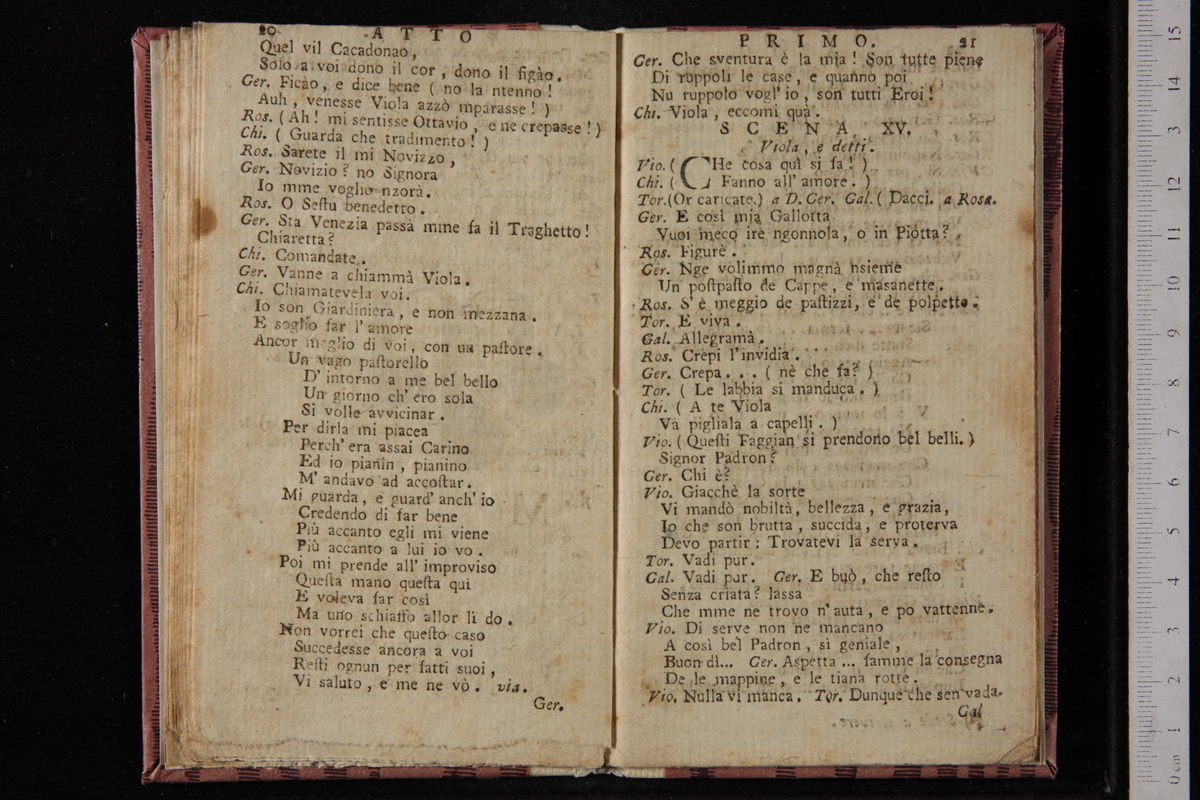 20 ATTO
Quel vil Cacadonao,
Solo a voi dono il cor, dono il figào.
Ger. Ficào, e dice bene ( no la ntenno!
Auh, venesse Viola azzò mparasse! )
Ros. ( Ah! mi sentisse Ottavio, e ne crepasse! )
Chi. ( Guarda che tradimento! )
Ros. Sarete il mi Novizzo,
Ger. Novizio? no Signora
Io mme voglio nzorà.
Ros. O Seſtu benedetto.
Ger. Sta Venezia passà mme fa il Traghetto!
Chiaretta?
Chi. Comandate.
Ger. Vanne a chiammà Viola.
Chi. Chiamatevela voi.
Io son Giardiniera, e non mezzana.
E soglio far l'amore
Ancor meglio di voi, con un paſtore.
Un vago paſtorello
D'intorno a me bel bello
Un giorno ch'ero sola
Si volle avvicinar.
Per dirla mi piacea
Perch'era assai Carino
Ed io pianin, pianino
M'andavo ad accoſtar.
Mi guarda, e guard'anch'io
Credendo di far bene
Più accanto egli mi viene
Più accanto a lui io vo.
Poi mi prende all'improviso
Queſta mano queſta qui
E voleva far così
Ma uno schiaffo allor li do.
Non vorrei che queſto caso
Succedesse ancora a voi
Reſti ognun per fatti suoi,
Vi saluto, e me ne vò. via.
Ger.
PRIMO. 21
Ger. Che sventura è la mia! Son tutte piene
Di ruppoli le case, e quanno poi
Nu ruppolo vogl'io, son tutti Eroi!
Chi. Viola, eccomi quà.
SCENA XV.
Viola, e detti.
Vio. ( CHe cosa quì si fa! )
Chi. ( Fanno all'amore. )
Tor. (Or caricate.) a D. Ger. Gal. ( Dacci. a Rosa.
Ger. E così mia Gallotta
Vuoi meco ire ngonnola, o in Piotta?
Ros. Figurè.
Ger. Nge volimmo magnà nsieme
Un poſtpaſto de Cappe, e masanette.
Ros. S'è meggio de paſtizzi, e de polpette.
Tor. E viva.
Gal. Allegramà.
Ros. Crepi l'invidia.
Ger. Crepa... ( nè che fa? )
Tor. ( Le labbia si manduca. )
Chi. ( A te Viola
Va pigliala a capelli. )
Vio. ( Queſti Faggian si prendono bel belli. )
Signor Padron?
Ger. Chi è?
Vio. Giacchè la sorte
Vi mandò nobiltà, bellezza, e grazia,
Io che son brutta, succida, e proterva
Devo partir: Trovatevi la serva.
Tor. Vadi pur.
Gal. Vadi pur. Ger. E buò, che reſto
Senza criata? lassa
Che mme ne trovo n'auta, e po vattenne.
Vio. Di serve non ne mancano
A così bel Padron, sì geniale,
Buon dì... Ger. Aspetta... famme la consegna
De le mappine, e le tiana rotte.
Vio. Nulla vi manca. Tor. Dunque che sen vada.
Gal